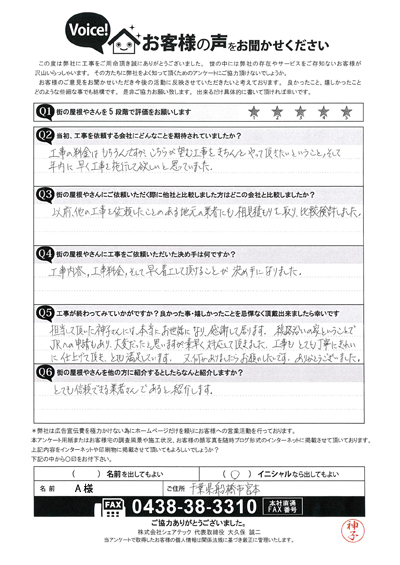 Voice!
お客様の声をお聞かせください
この度は弊社に工事をご用命頂き誠にありがとうございました。世の中には弊社の存在やサービスをご存知ないお客様が
沢山いらっしゃいます。その方たちに弊社をよく知って頂くためのアンケートにご協力頂けないでしょうか。
お客様のご意見をお聞かせいただき今後の活動に反映させていただきたいと考えております。良かったこと、嬉しかったこと
どのような些細な事でも結構です。是非ご協力お願い致します。出来るだけ具体的に書いて頂ければ幸いです。
Q1 街の屋根やさんを5段階で評価をお願いします
★ ★ ★ ★ ★
Q2 当初、工事を依頼する会社にどんなことを期待されていましたか?
工事の料金はもちろんですが、こちらが望む工事をきちんとやって頂きたいということ、そして
年内に早く工事を施行して欲しいと思っていました。
Q3 街の屋根やさんにご依頼いただく際に他社と比較しました方はどこの会社と比較しましたか?
以前、他の工事を依頼したことのある地元の業者にも相見積もりを取り、比較検討しました。
Q4 街の屋根やさんに工事をご依頼いただいた決め手は何ですか?
工事内容、工事料金、そして早く着工して頂けることが決め手になりました。
Q5 工事が終わってみていかがですか?良かった事・嬉しかったことを忌憚なく頂戴出来ましたら幸いです
担当して頂いた神子さんには、本当にお世話になり、感謝しております。線路沿いの家ということで
JRへの申請もあり、大変だったと思いますが素早く対応して頂きました。工事もとても丁寧にきれい
に仕上げて頂き、とても満足しています。又、何かありましたらお願いしたいです。ありがとうございました。
Q6 街の屋根やさんを他の方に紹介するとしたらなんと紹介しますか?
とても信頼できる業者さんであると紹介します。
*弊社は広告宣伝費を極力かけない為にホームページだけを頼りにお客様への営業活動を行っております。
本アンケート用紙またはお客様宅の調査風景や施工状況、お客様の顔写真を随時ブログ形式のインターネットに掲載させて頂いております。
上記内容をインターネットや印刷物に掲載させて頂いてもよろしいでしょうか?
下記の中から〇印をお付下さい。
( )名前を出してもよい (〇)イニシャルなら出してもよい
名前 A様 ご住所 千葉県船橋市宮本
FAX 0438-38-3310 本社直通 FAX番号
ご協力ありがとうございました。
株式会社シェアテック 代表取締役 大久保 誠二
当アンケートで取得したお客様の個人情報は関係法規に基づき厳正に管理いたします。
神子